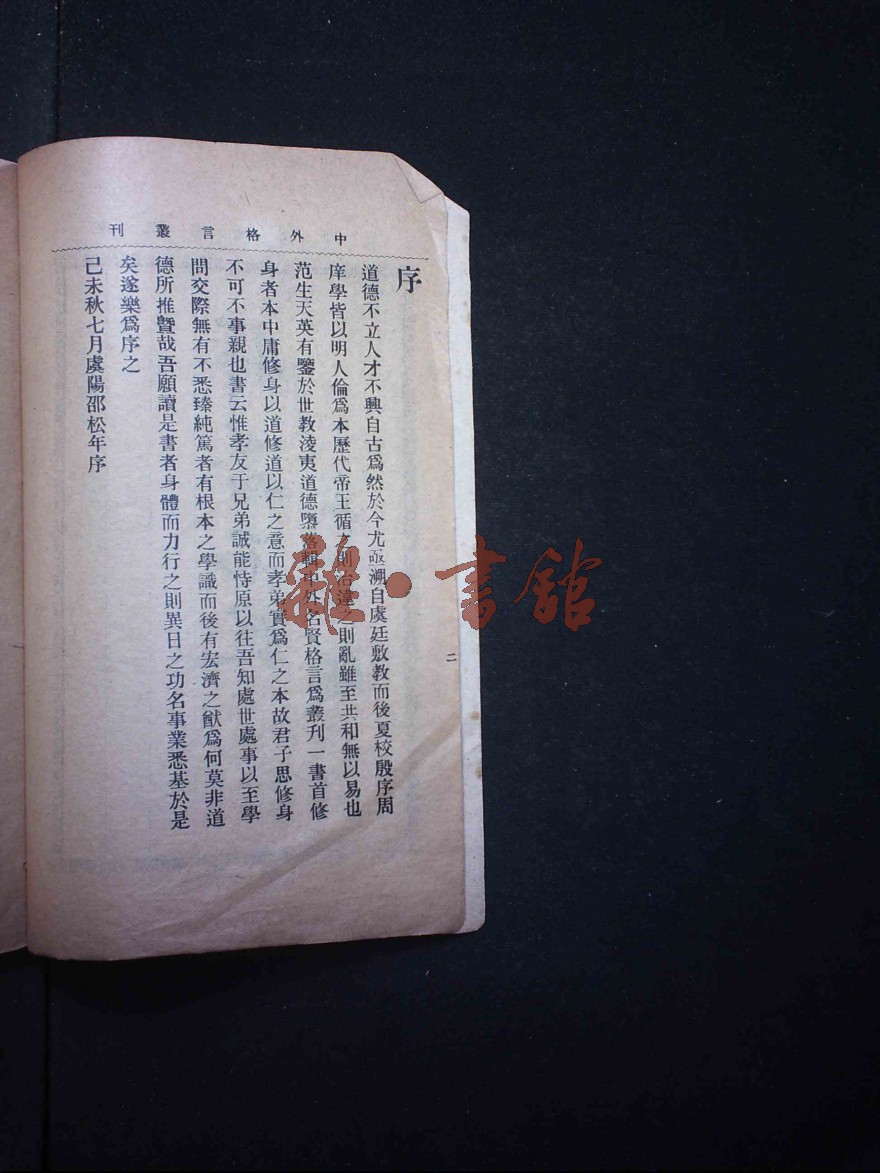 中外格言叢刊
序
道德不立人才不興自古爲然於今尤亟溯自虞廷敷教而後夏校殷序周
庠學皆以明人倫爲本歷代帝王循之則治違之則亂雖至共和無以易也
范生天英有鑒於世教淩夷道德墮落輯中外名賢格言爲叢刊一書首修
身者本中庸修身以道修道以仁之意而孝弟實爲仁之本故君子思修身
不可不事親也書云惟孝友于兄弟誠能恃原以往吾知處世處事以至學
問交際無有不悉臻純篤者有根本之學識而後有宏濟之猷爲何莫非道
德所推曁哉吾願讀是書者身體而力行之則異日之功名事業悉基於是
矣遂樂爲序之
己未秋七月虞陽邵松年序
二
雜·書館